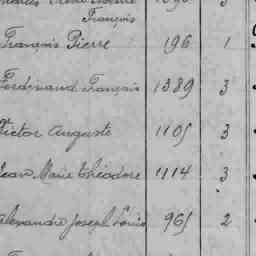 François
François Pierre 196 1
Ferdinand François 1389 3
Victor Auguste 1105 3
Jean Marie Théodore 1114 3
Alexandre Joseph Louis 965 2